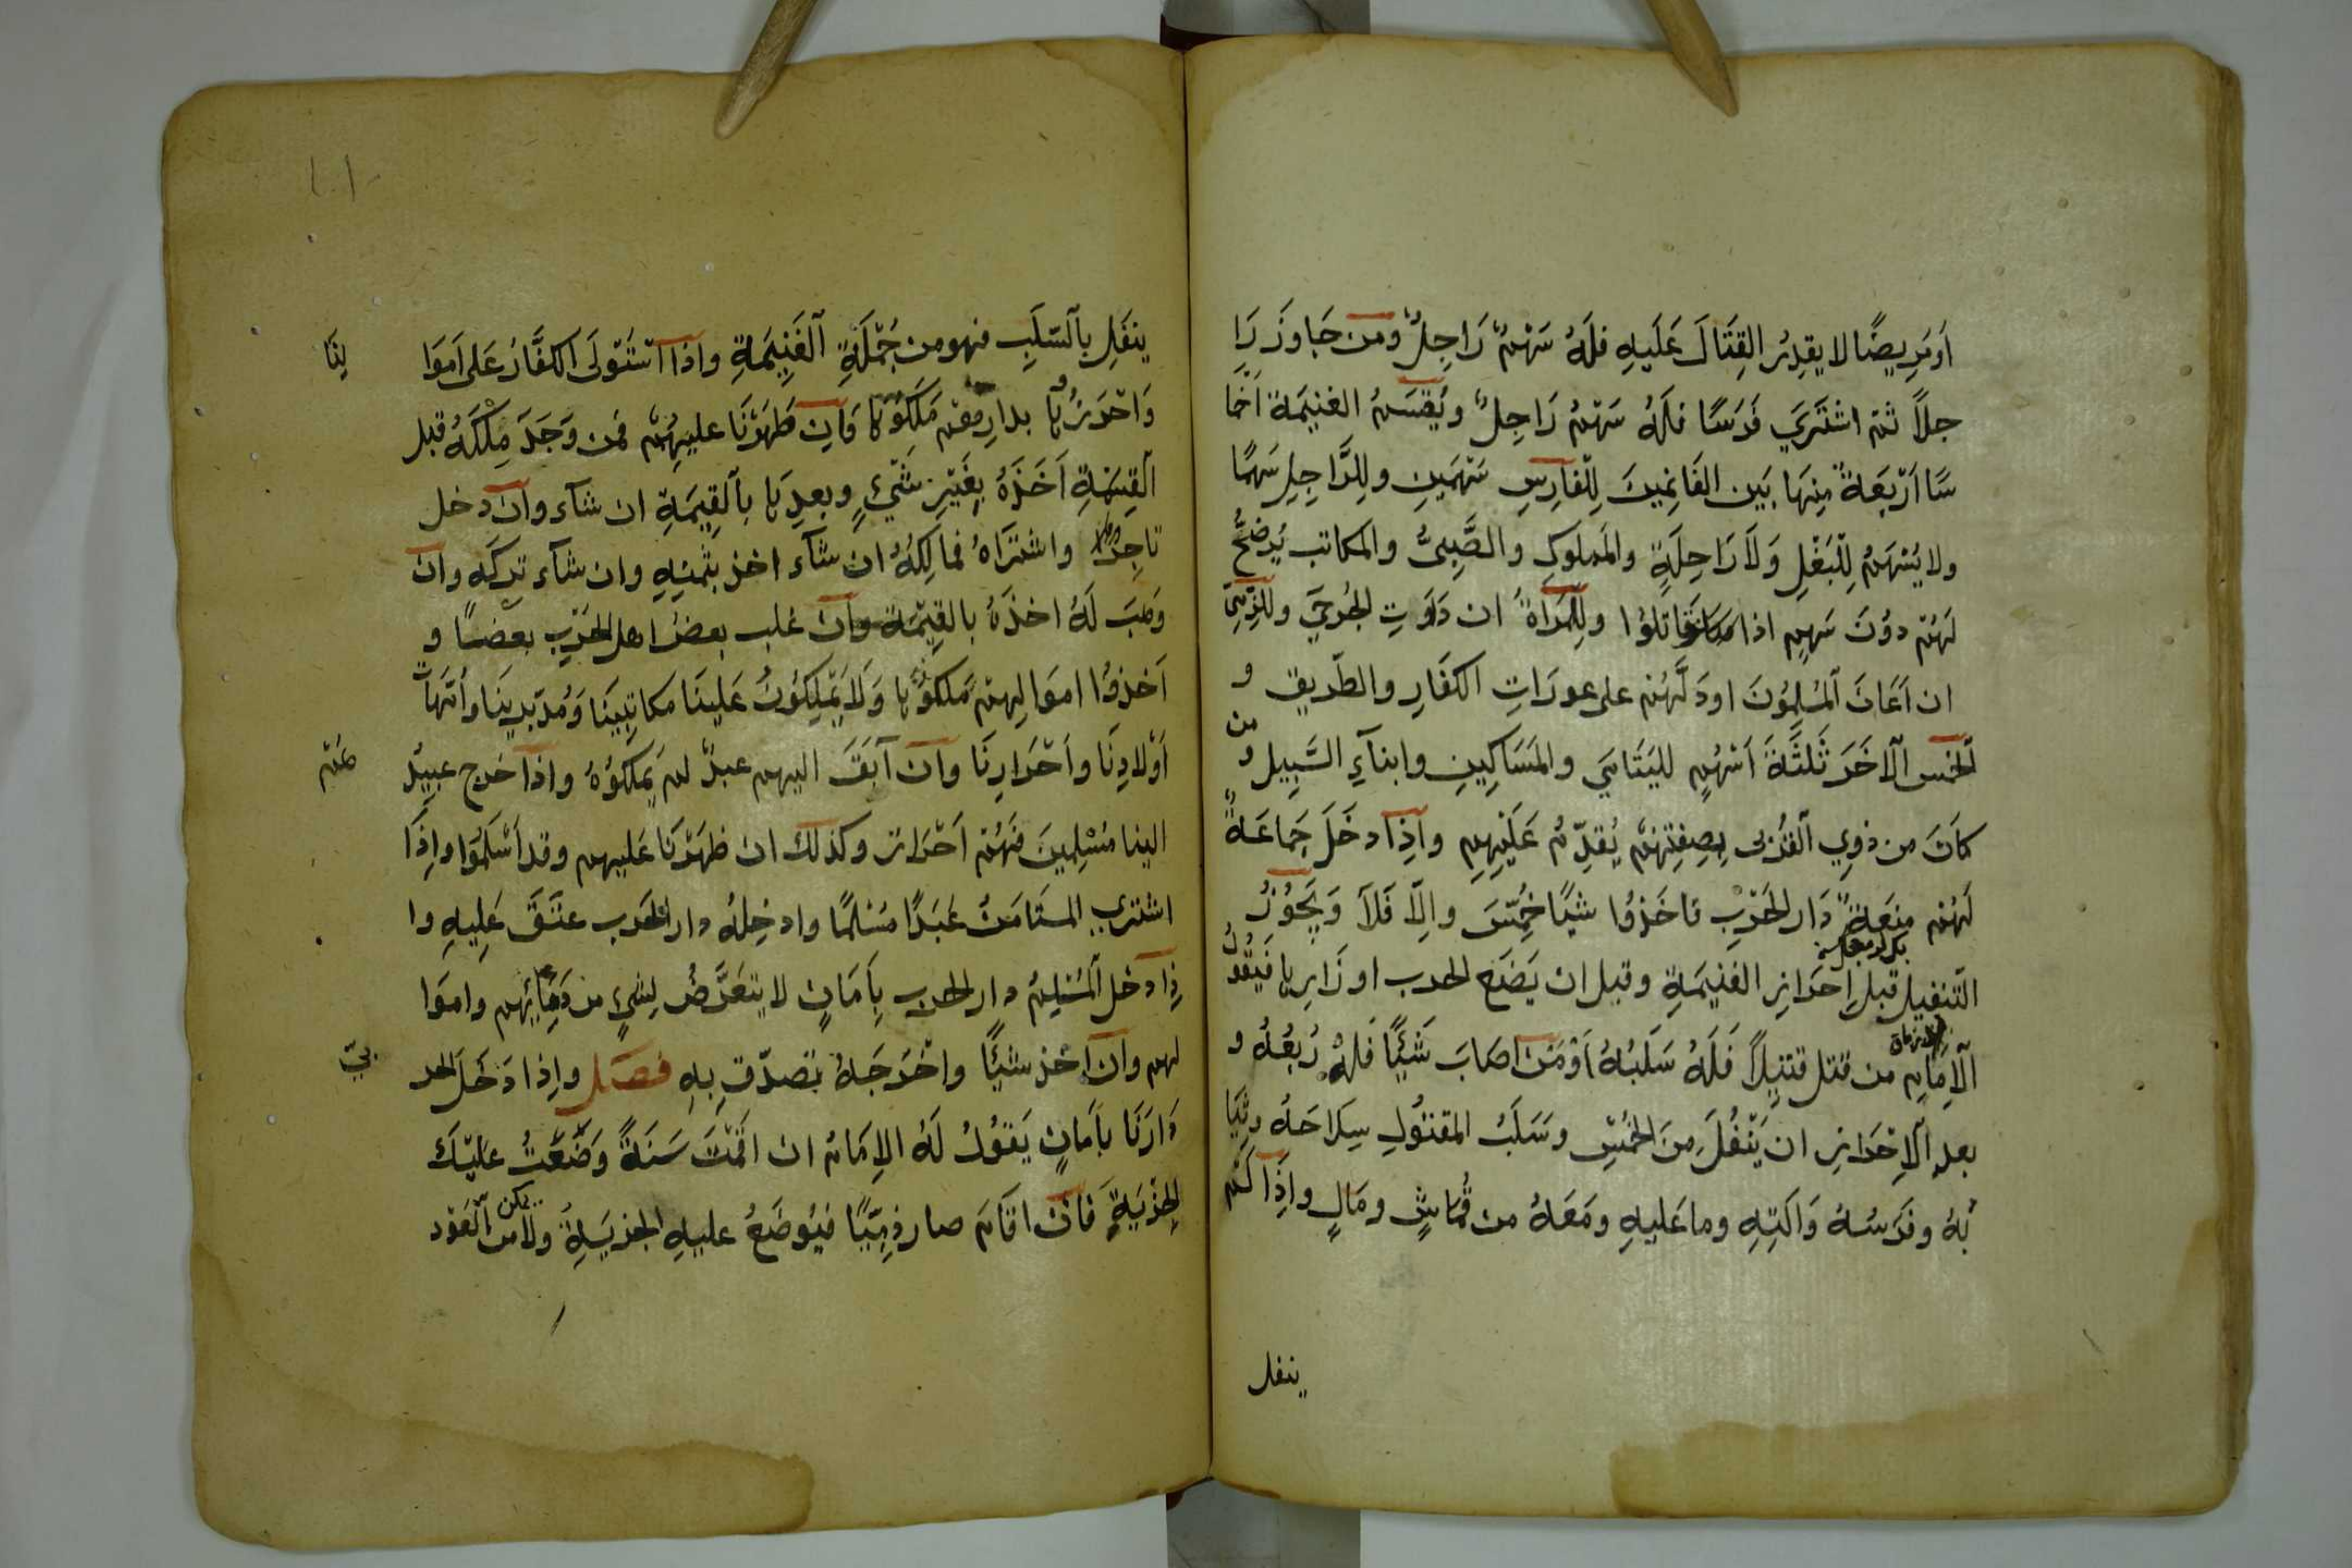 اَو مَرِيضًا لا يقدِرُ القِتَالَ عَلَيهِ فلَهُ سَهْمُ رَاجِلٍ ومن جَاوزَ رَا
جلاً ثمّ اشتَرَي فَرَسًا فلَهُ سَهْمُ رَاجِلٍ ويُقسَمُ الغنيمَة اَخمَا
سًا اَرْبَعَةٌ مِنهَا بَين الغَانِمِينَ لِلفَارِسِ سَهْمَينِ ولِلرَّاجِلِ سَهمًا
ولا يُسْهَمُ لِلْبَغْلِ وَلاَ رَاحِلَةٍ والمَملوكِ والصَّبِىُّ والمكاتب يُرضَخُ
لَهُمْ دوُنَ سَهمٍ اذا قَاتلوُا ولِلْمَرأةُ ان دَاوَتِ الجُرحَي وللذِّمّي
ان اَعَانَ المُسْلِموُنَ او دَلَّهُم على عورَاتِ الكفَارِ والطّريق و
الخمس اَلآخَرَ ثَلثَةَ اَسْهُمٍ لليَتَامَي والمَسَاكِينِ وابنآءِ السَّبِيل و من
كَانَ من ذوِي القُربى بصِفتِهِمْ يُقدّمُ عَلَيْهِمِ واذِا دخَلَ جَماعَةٌ
لَهُم مِنعَةٌ دَار الحَرْبِ فاخَذوُا شيًا خُمِّسَ واِلاّ فَلاَ وَيَجُوُزُ
التّنفيل قبل اِحرَازِ الغَنيمَةِ وقبل ان يَضَع الحرب اوزَارِها فيَقُولُ
اَلاِمَامِ من قتل قتيلاً فَلَهُ سَلَبُهُ اَوْ مَنْ اصَابَ شَيْئًا فلهُ رُبعُهُ و
بعد اَلاِحْرَازِ ان يَنْفُلَ مِنَ الخُمْسِ وسَلَبُ المقتوُلِ سِلاحَهُ وثيَا
بُهُ وفرَسُهُ وَالَتِهِ وما عَليهِ ومَعَهُ من قُمَاشٍ ومَالٍ واِذَا لَم
ينفل
ينفَلِ بِالسّلَبِ فهو من جُمْلَةِ الغَنِيمَةِ واذا استَوْلَى الكفَّارُ عَلى اَموَا لِنَا
وَاحْرَزُوُهَا بدارِهِمْ مَلَكوُهَا فَاِن ظَهَرْنَا عليهِمْ فمن وَجَدَ مِلْكَهُ قبل
القِسْمَةِ اَخَذَهُ بِغَيْرِ شَيْءٍ وبعدِهَا بِالقِيمَةِ ان شآء وان دخل
تاجِرٌ واشترَاهُ فمالِكُهُ ان شآء اخذ بثمنِهِ وان شآء تركَه وان
وَهَبَ لَهُ اخذَهُ بالقِيْمَة وان غلب بعضُ اهل الحَرْبِ بعضًا و
اَخذوُا اموَالِهِمْ مَلكوُهَا وَلاَ يَمْلِكوُنُ عَلينَا مكاتِبِينَا وَمُدبّرِينَا وَاُمّهَاتِ
اَوْلادِنَا واَحْرَارِنَا وان اَبَقَ اليهم عبدٌ لم يَمْلكوُهُ واذا خرج عبيدُ هُمْ
الينا مُسْلِمينَ فَهُمْ اَحْرَار وكذلك ان ظهَرْنَا عَليهم وقد اَسْلَمُوا واِذَا
اشترَي المستَامَنُ عَبَدًا مُسْلِمًا وادخِلهُ دار الحَرب عتَقَ عَلِيهِ وا
ذِا دَخل المُسْلِمُ دار الحرب بِاَمَانٍ لا يتعَرَّضُ لِشيءٍ من دِمَائِهم واموَا
لهم وان اخذ شيئًا واخْرَجَهُ تصدّق بِهِ فصَل واِذا دَخَلَ الحر بيّ
دَارَنَا بِاَمَانٍ يَقوُلُ لَهُ الاِمَامُ ان اقَمْتَ سَنَةً وَضَعْتُ عَليْكَ
الجِزْيَةِ فَانْ اقَامَ صار ذِمِّيًا فيُوضَعُ عليهِ الجزيَةُ ولا يمكن من العَوْد